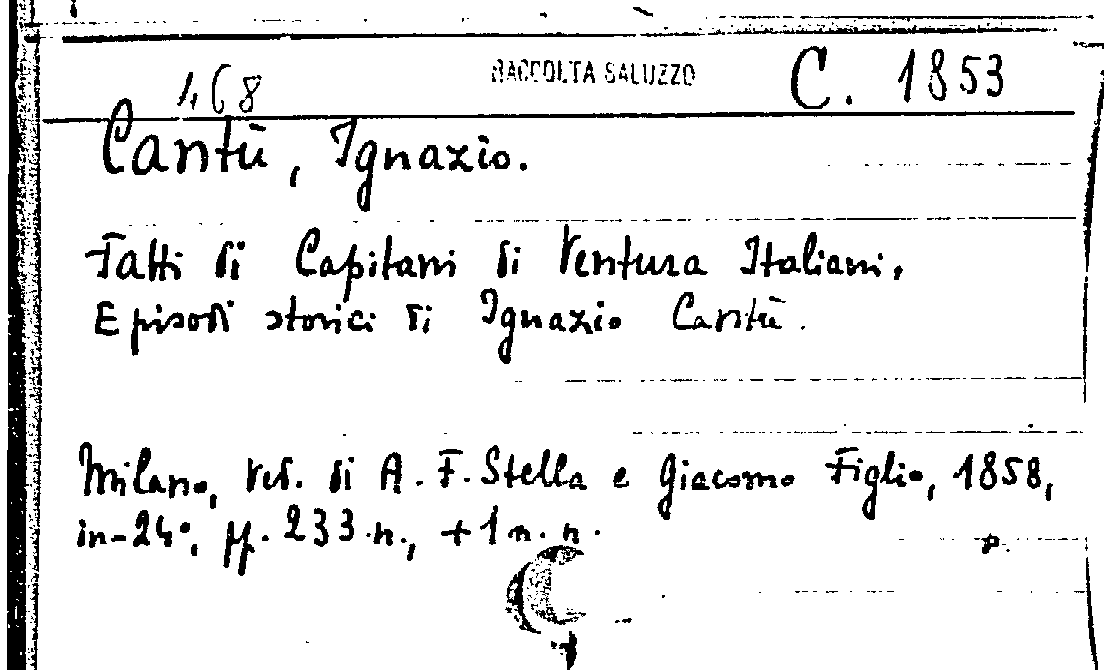 468 RACCOLTA SALUZZO C. 1853
Cantù, Ignazio.
Fatti di Capitani di Ventura Italiani.
Episodi storici di Ignazio Cantù.
Milano, Ved. di A. F. Stella e Giacomo Figlio, 1858,
in-24°, pp. 233 n., + 1 n. n.